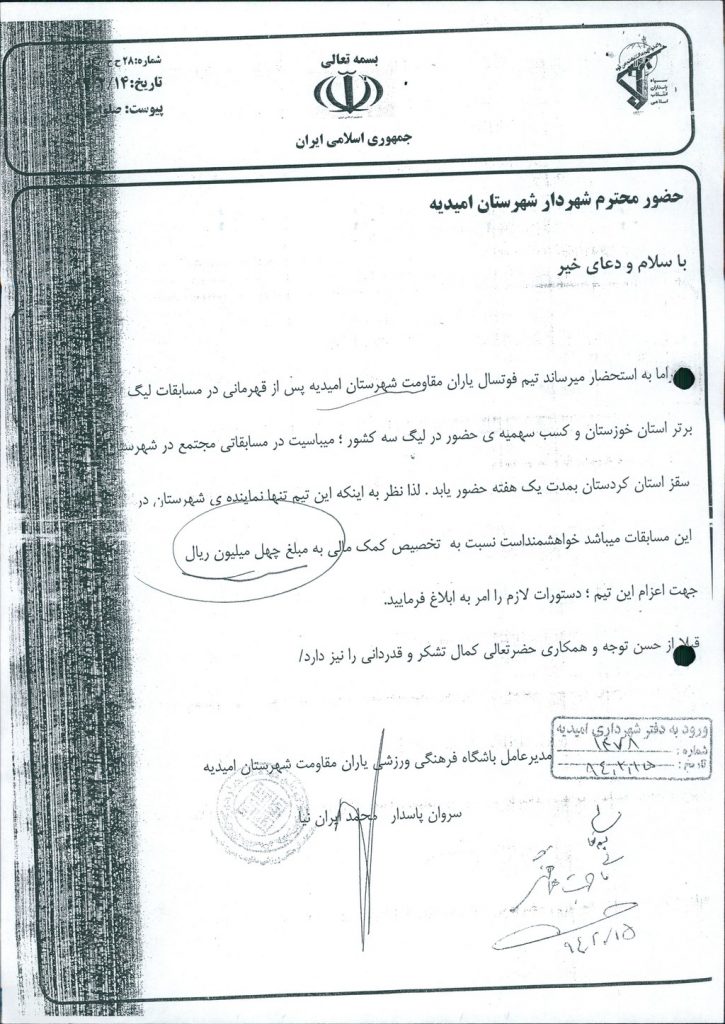 بسمه تعالی
جمهوری اسلامی ایران
سپاه
پاسداران
انقلاب
اسلامی
شماره: ۲۸ ح ج
تاریخ: ۲/۱۴
پیوست:
حضور محترم شهردار شهرستان امیدیه
با سلام و دعای خیر
اما به استحضار میرساند تیم فوتسال یاران مقاومت شهرستان امیدیه پس از قهرمانی در مسابقات لیگ
برتر استان خوزستان و کسب سهمیه ی حضور در لیگ سه کشور ؛ میباسیت در مسابقاتی مجتمع در
سقز استان کردستان بمدت یک هفته حضور یابد . لذا نظر به اینکه این تیم تنها نماینده ی شهرستان در
این مسابقات میباشد خواهشمنداست نسبت به تخصیص کمک مالی به مبلغ چهل میلیون ریال
جهت اعزام این تیم ؛ دستورات لازم را امر به ابلاغ فرمایید.
قبلا از حسن توجه و همکاری حضرتعالی کمال تشکر و قدردانی را نیز دارد/
ورود به دفتر شهرداری امیدیه
شماره: ۱۴۷۸
تاریخ: ۹۴,۲,۱۵
مدیرعامل باشگاه فرهنگی ورزشی یاران مقاومت شهرستان امیدیه
سروان پاسدار محمد ایران نیا
۹۴/۲/۱۵